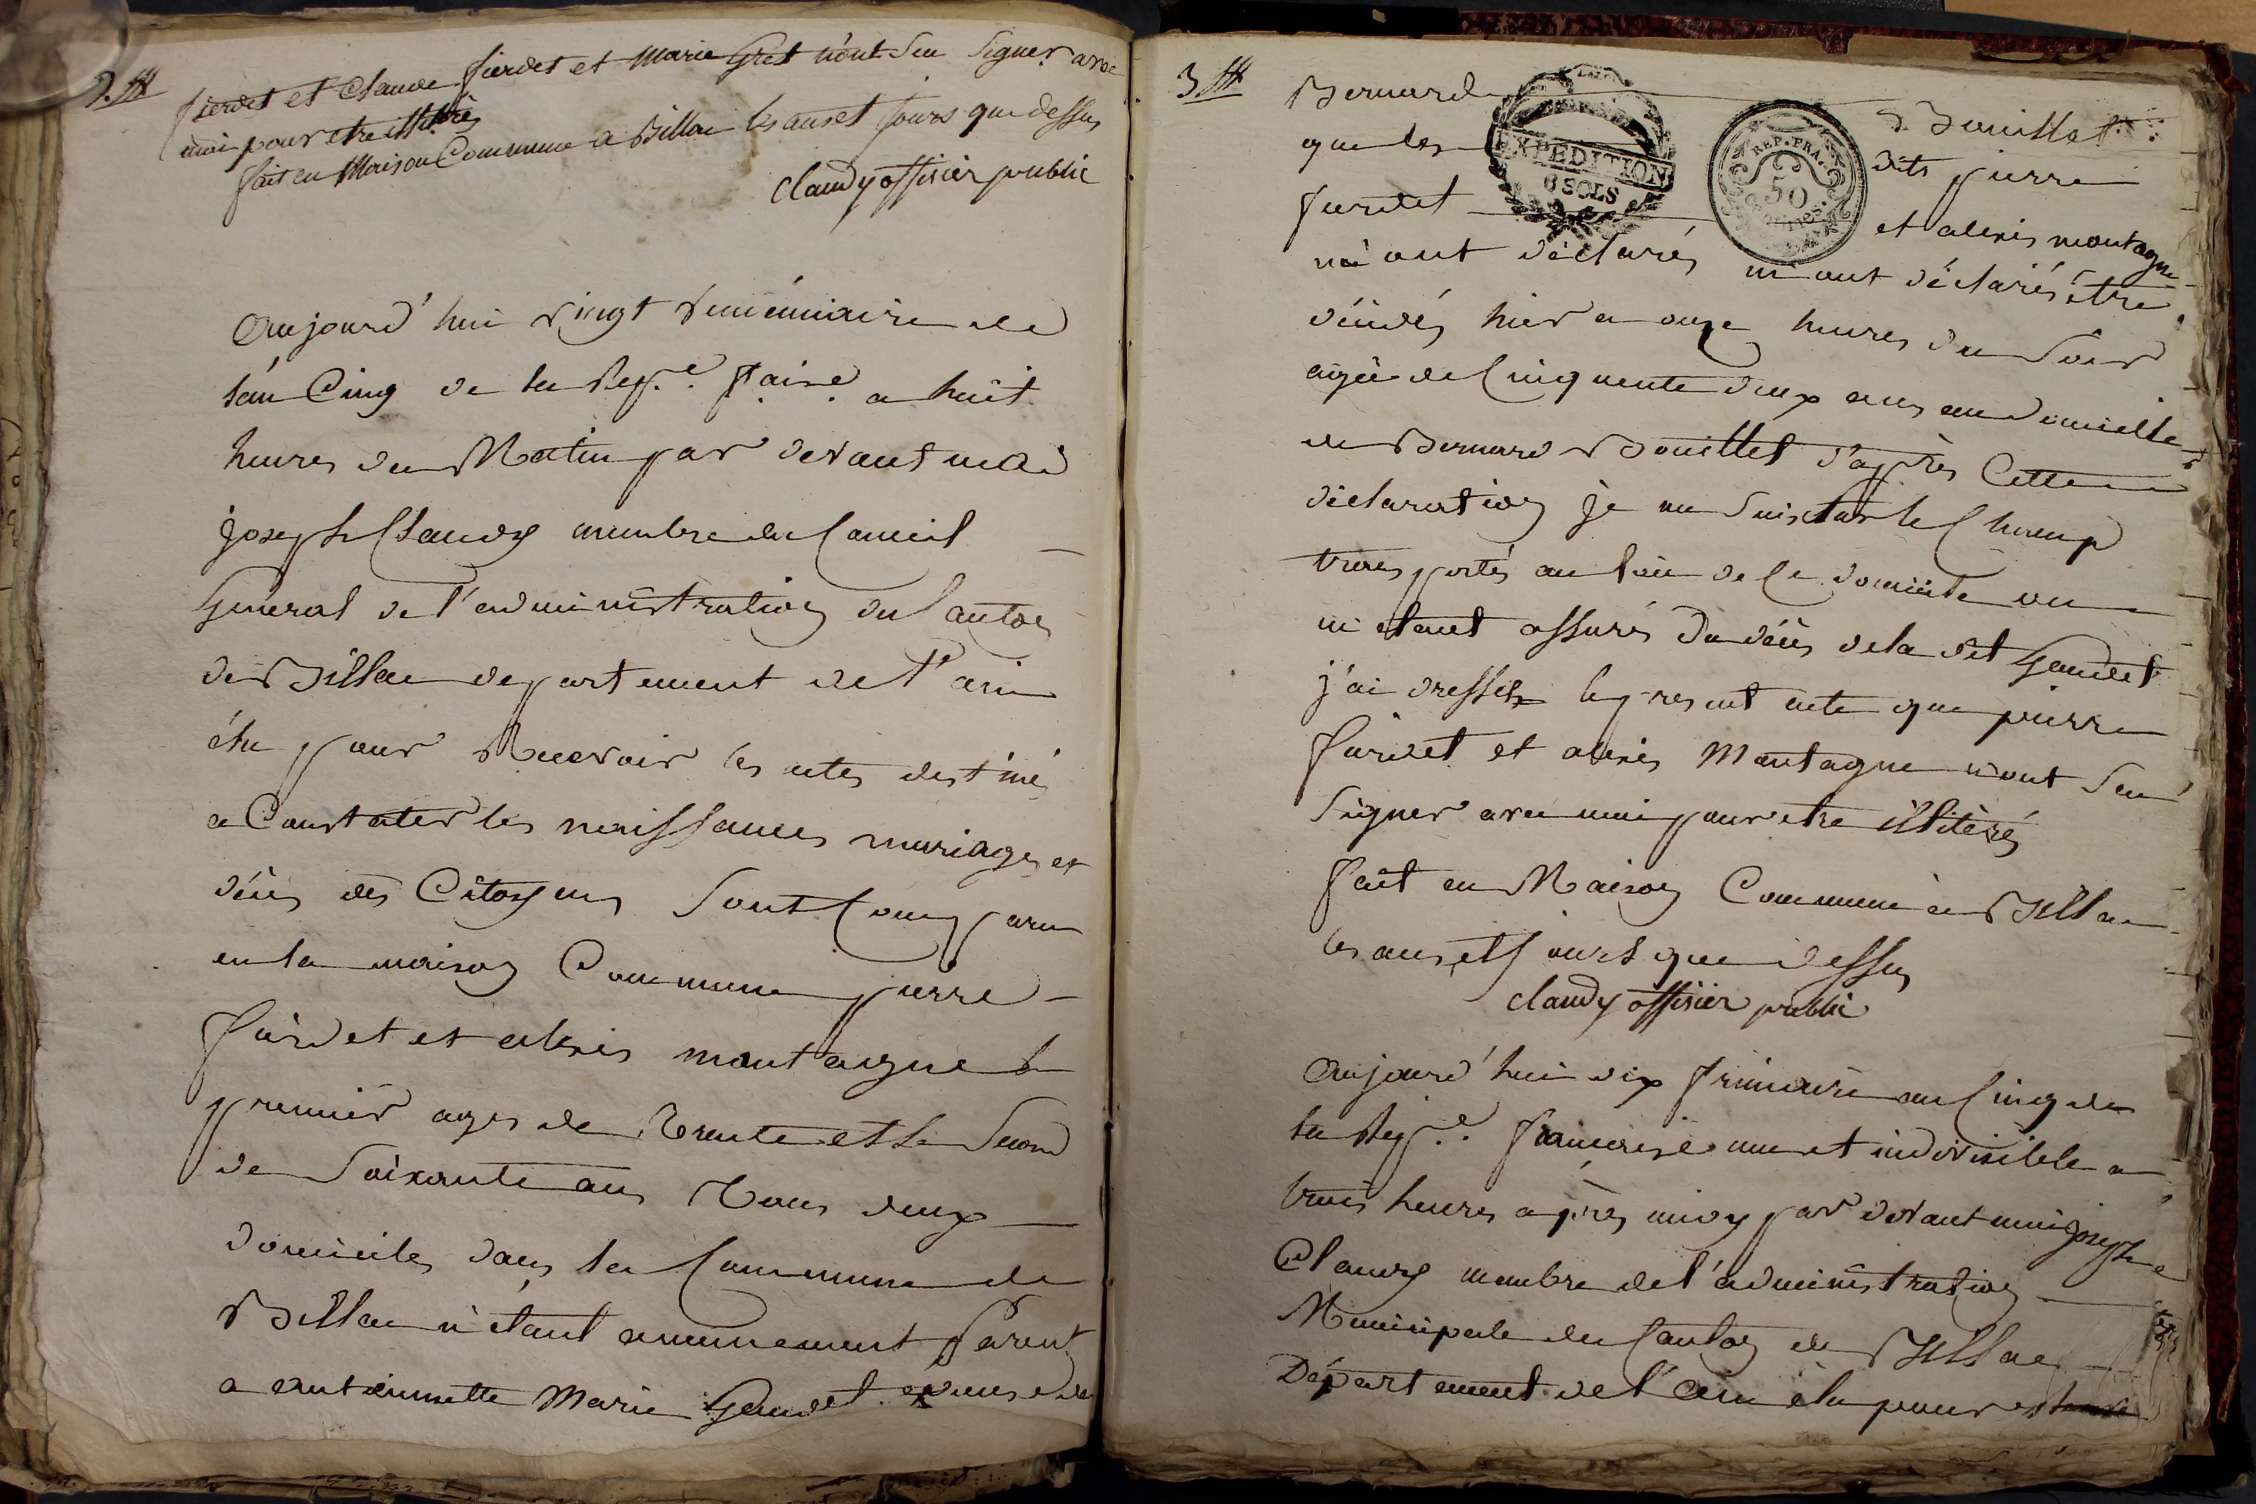 fierdet et Claude fierdet et Marie Gret n'ont Seu Signer avec
moi pour etre illiterés
fait en Maison Commune a Billac les an et Jours que dessus
Claudy offisier public
Aujourd'hui vingt vendémiaire de
l'an Cinq de la Repe. f.aise. a huit
heures du Matin par devant moi
joseph Claudy membre du Conseil
General de l'administration du Canton
de Billac departement de l'ain
élu pour Recevoir les actes destiné
a Constater les naissances mariages et
déces des Citoyens Sont Comparu
en la maison Commune pierre
fierdet et alexis montaigne le
premier ages de Trente et le Second
de Soixante ans Tous deux
domicilés dans la Commune de
Billac n'étant aucunement Parent
a antoinnette Marie Gaudet epouse de
3
Bernard Bouillet
que les dits pierre
fierdet et alexis montagne
m'ont déclarés être
décédés hier a onze heures du Soir
agée de Cinquente deux ans au domicille
de Bernard Bouillet d'après Cette
déclaration je me Suis Sur le Champ
transportés au lieu de Ce domicile ou
m'etant assurés du déces de la dit Gaudet
j'ai dresser le present acte que pierre
fierdet et alexis Montagne n'ont Seu
Signer avec moi pour etre illiterés
fait en Maison Commune a Billac
les an et Jours que dessus
Claudy offisier public
EXPEDITION
6 SOLS
REP. FRA.
50
Aujourd'hui dix frimaire an Cinq de
la Repe. francaise une et indivisible a
trois heures après midy par devant moi joseph
Claudy membre de l'administration
Municipale du Canton de Billac
Département de l'ain élu pour